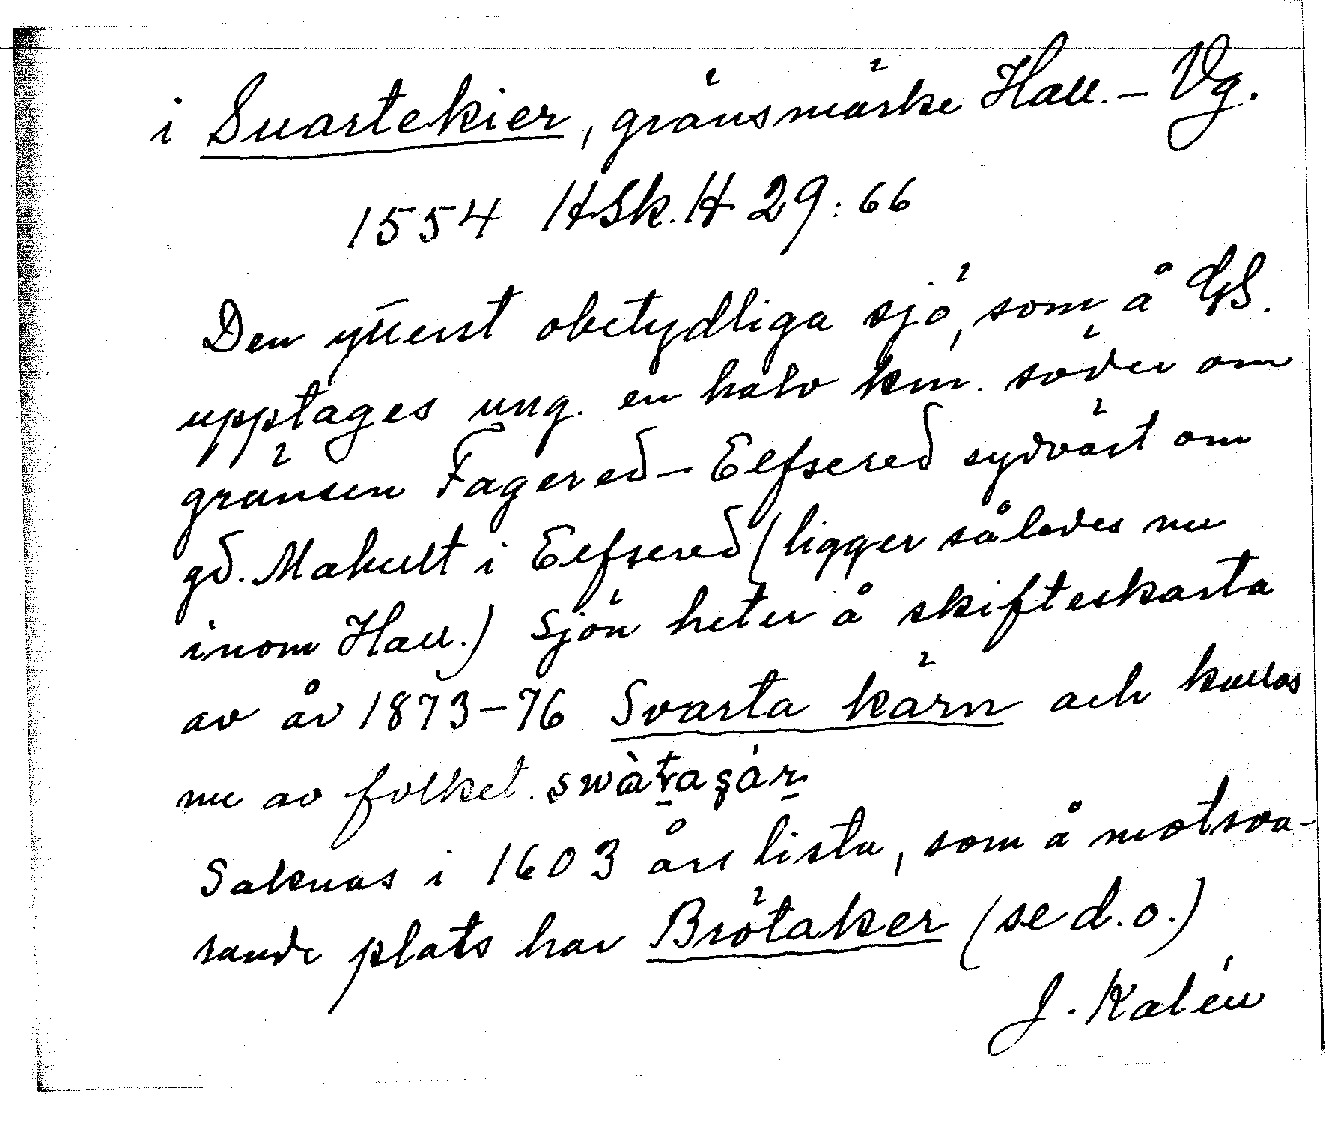 i Suartekier, gränsmärke Hall. – Vg.
1554 HSk. H 29:66
Den ytterst obetydliga sjö, som å GS.
upptages ung. en halv km. söder om
gränsen Fagered – Elfsered sydväst om
gd. Makult i Elfsered (ligger således nu
inom Hall.) Sjön heter å skifteskarta
av år 1873–76 Svarta kärn och kallas
nu av folket
Saknas i 1603 års lista, som å motsva-
rande plats har Brötaker (se d.o.)
J. Kalén